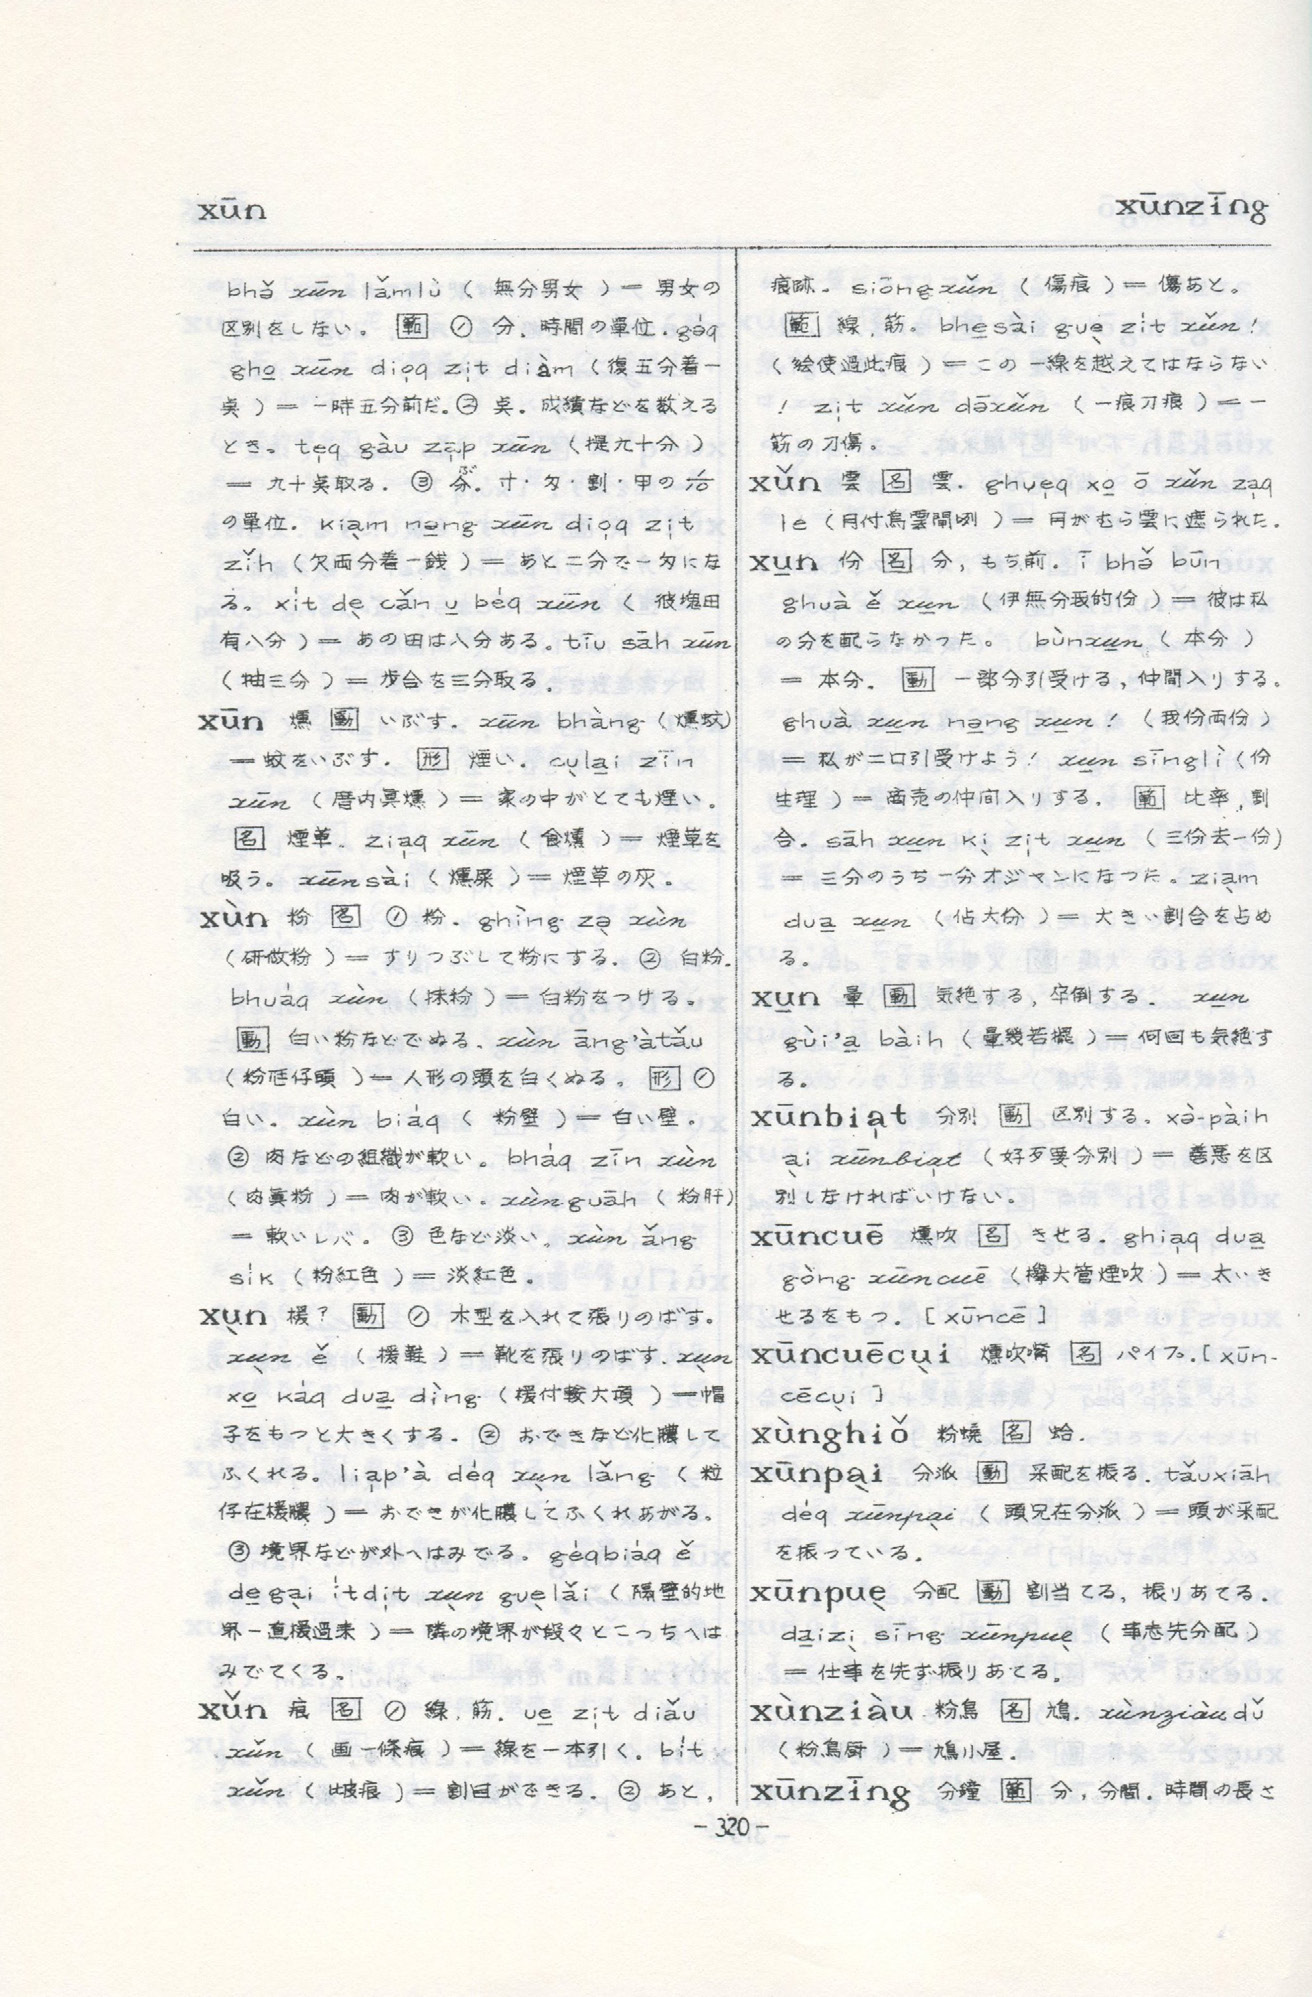 xūn
xūnzīng
bhə̌ xūn lǎmlù ( 無分男女 ) = 男女の
区別をしない。 範 ① 分. 時間の單位. gə́q
gho̱ xūn diọq zịt diàm (復五分着一
奌 ) = 一時五分前だ. ② 奌. 成績などを数える
とき。 tẹq gàu zạp xūn (提九十分 )
= 九十奌取る. ③ 分. 寸・匁・割・甲の
の單位. kiạm nə̱ng xūn diọq zịt
zǐh (欠両分着一銭 ) = あと二分で一匁にな
る。 xít dẹ cǎn u̱ béq xūn ( 彼塊田
有八分 ) = あの田は八分ある. tīu sāh xūn
( 抽三分 ) = 歩合を三分取る.
xūn 燻 動 いぶす. xūn bhàng (燻蚊)
= 蚊をいぶす. 形 煙い. cụla̱i zīn
xūn (厝内真燻 ) = 家の中がとても煙い.
名 煙草. ziạq xūn ( 食燻 ) = 煙草を
吸う。 xūnsài (燻屎 ) = 煙草の灰.
xùn 粉 名 ① 粉. ghìng zə̣ xùn
(研做粉 ) = すりつぶして粉にする. ② 白粉.
bhuáq xùn (抹粉 ) = 白粉をつける.
動 白い粉などでぬる. xùn āng'àtǎu
(粉尪仔頭 ) = 人形の頭を白くぬる. 形 ①
白い. xùn biáq ( 粉壁 ) = 白い壁.
② 肉などの組織が軟い. bháq zīn xùn
(肉真粉 ) = 肉が軟い. xùnguāh ( 粉肝)
= 軟いレバ。 ③ 色など淡い. xùn ǎng
sík (粉紅色 ) = 淡紅色.
xụn 楥? 動 ① 木型を入れて張りのばす.
xụn ě (楥鞋 ) = 靴を張りのばす. xụn
xo̱ káq dua̱ dìng (楥付較大頂 ) = 帽
子をもつと大きくする. ② おできなど化膿して
ふくれる. liạp'à déq xụn lǎng ( 粒
仔在楥膿 ) = おできが化膿してふくれあがる.
③ 境界などが外へはみでる. géqbiáq ě
de̱gại ítdịt xụn guẹlǎi (隔壁的地
界一直楥過来 ) = 隣の境界が段々とこっちへは
みでてくる.
xǔn 痕 名 ① 線. 筋. ue̱ zịt diǎu
xǔn ( 画一條痕 ) = 線を一本引く. bít
xǔn ( 必痕 ) = 割目ができる. ② あと,
痕跡. siōngxǔn (傷痕 ) = 傷あと.
範 線, 筋. bhe̱sài guẹ zịt xǔn!
(絵使過此痕 ) = この一線を越えてはならない
! zịt xǔn dāxǔn (一痕刀痕 ) = 一
筋の刀傷.
xǔn 雲 名 雲. ghuẹq xo̱ ō xǔn zaq
le (月付烏雲閘咧 ) = 月がむら雲に遮られた.
xu̱n 份 名 分, もち前. ī bhə̌ būn
ghuà ě xu̱n (伊無分我的份 ) = 彼は私
の分を配らなかった. bùnxu̱n ( 本分 )
= 本分. 動 一部分引受ける, 仲間入りする.
ghuà xu̱n nə̱ng xu̱n! (我份両份 )
= 私が二口引受けよう! xu̱n sīnglì (份
生理 ) = 商売の仲間入りする. 範 比率, 割
合. sāh xu̱n kị zịt xu̱n (三份去一份)
= 三分のうち一分オジャンになつた. ziạm
dua̱ xu̱n (佔大份 ) = 大きい割合を占め
る.
xu̱n 暈 動 気絶する, 卒倒する. xu̱n
gùi'a̱ bàih (暈幾若擺 ) = 何回も気絶す
る.
xūnbiạt 分別 動 区別する. xə̀-pàih
ại xūnbiạt (好歹要分別 ) = 善悪を区
別しなければいけない.
xūncuē 燻吹 名 きせる. ghiạq dua̱
gòng xūncuē (攑大管煙吹 ) = 太いき
せるをもつ. [ xūncē ]
xūncuēcụi 燻吹嘴 名 パイプ. [ xūn-
cēcụi ]
xùnghiǒ 粉蟯 名 蛤.
xūnpại 分派 動 采配を振る. tǎuxiāh
déq xūnpại ( 頭兄在分派 ) = 頭が采配
を振っている.
xūnpuẹ 分配 動 割当てる, 振りあてる.
da̱izị sīng xūnpuẹ (事志先分配 )
= 仕事を先ず振りあてる.
xùnziàu 粉鳥 名 鳩. xùnziàudǔ
(粉鳥厨 ) = 鳩小屋.
xūnzīng 分鐘 範 分, 分間. 時間の長さ
- 320 -